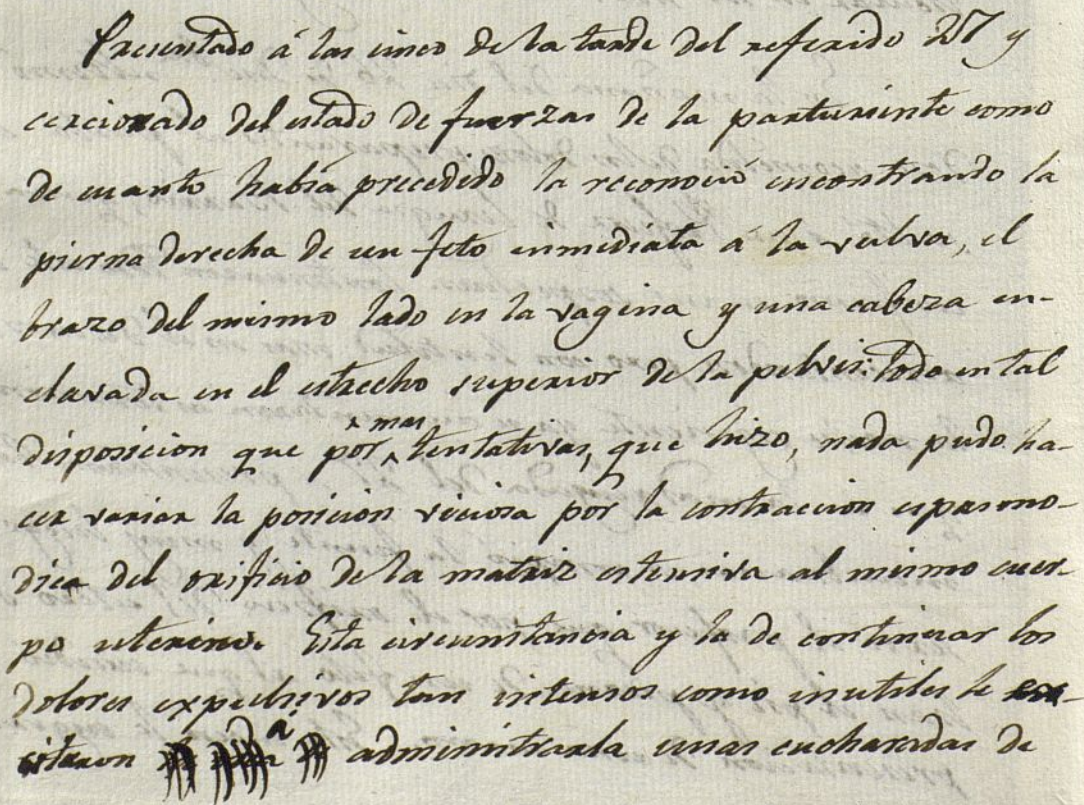 Presentado á las cinco de la tarde del referido 27 y
cercionado del estado de fuerzas de la parturiente como
de cuanto habia precedido la reconoció encontrando la
pierna derecha de un feto inmediata á la vulva, el
brazo del mismo lado en la vagina y una cabeza en-
clavada en el estrecho superior de la pelvis: Todo en tal
disposicion que por mas tentativas, que hizo, nada pudo ha-
cer variar la posicion viciosa por la contraccion espasmo-
dica del orificio de la matriz estensiva al mismo cuer-
po uterino. Esta circunstancia y la de continuar los
dolores expulsivos tan intensos como inutiles le
citaron á administrarla unas cucharadas de